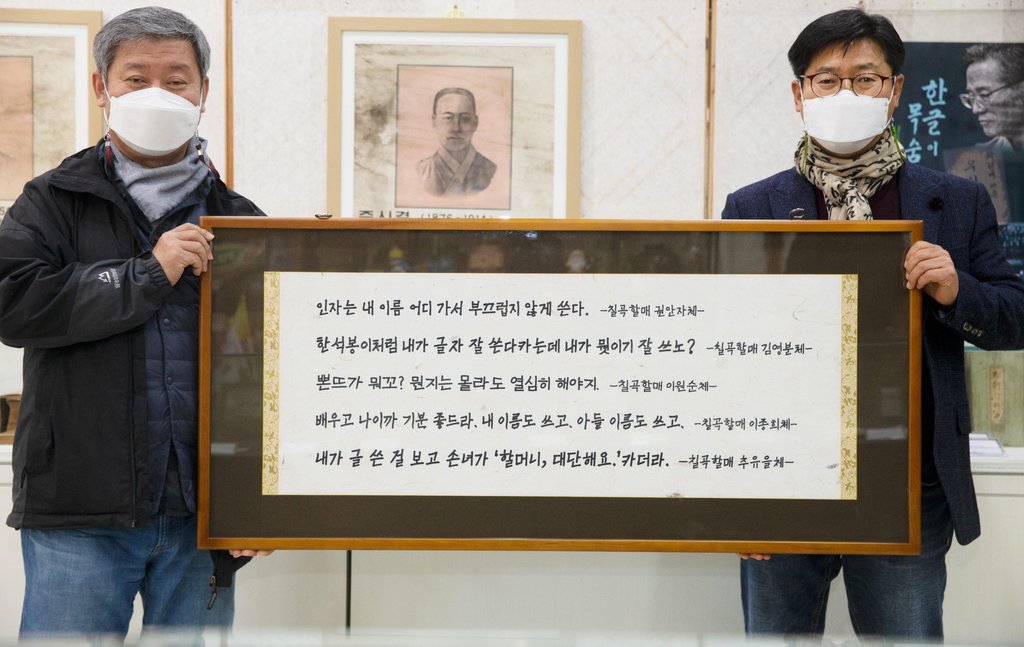 주시경 (1876-1914)
한글이
목숨
인자는 내 이름 어디 가서 부끄럽지 않게 쓴다. -칠곡할매 권안자체-
한석봉이처럼 내가 글자 잘 쓴다카는데 내가 뭣이기 잘 쓰노? -칠곡할매 김영분체-
뽄뜨가 뭐꼬? 뭔지는 몰라도 열심히 해야지. -칠곡할매 이원순체-
배우고 나이까 기분 좋드라. 내 이름도 쓰고, 아들 이름도 쓰고. -칠곡할매 이종희체-
내가 글 쓴 걸 보고 손녀가 '할머니, 대단해요.'카더라. -칠곡할매 추유을체-